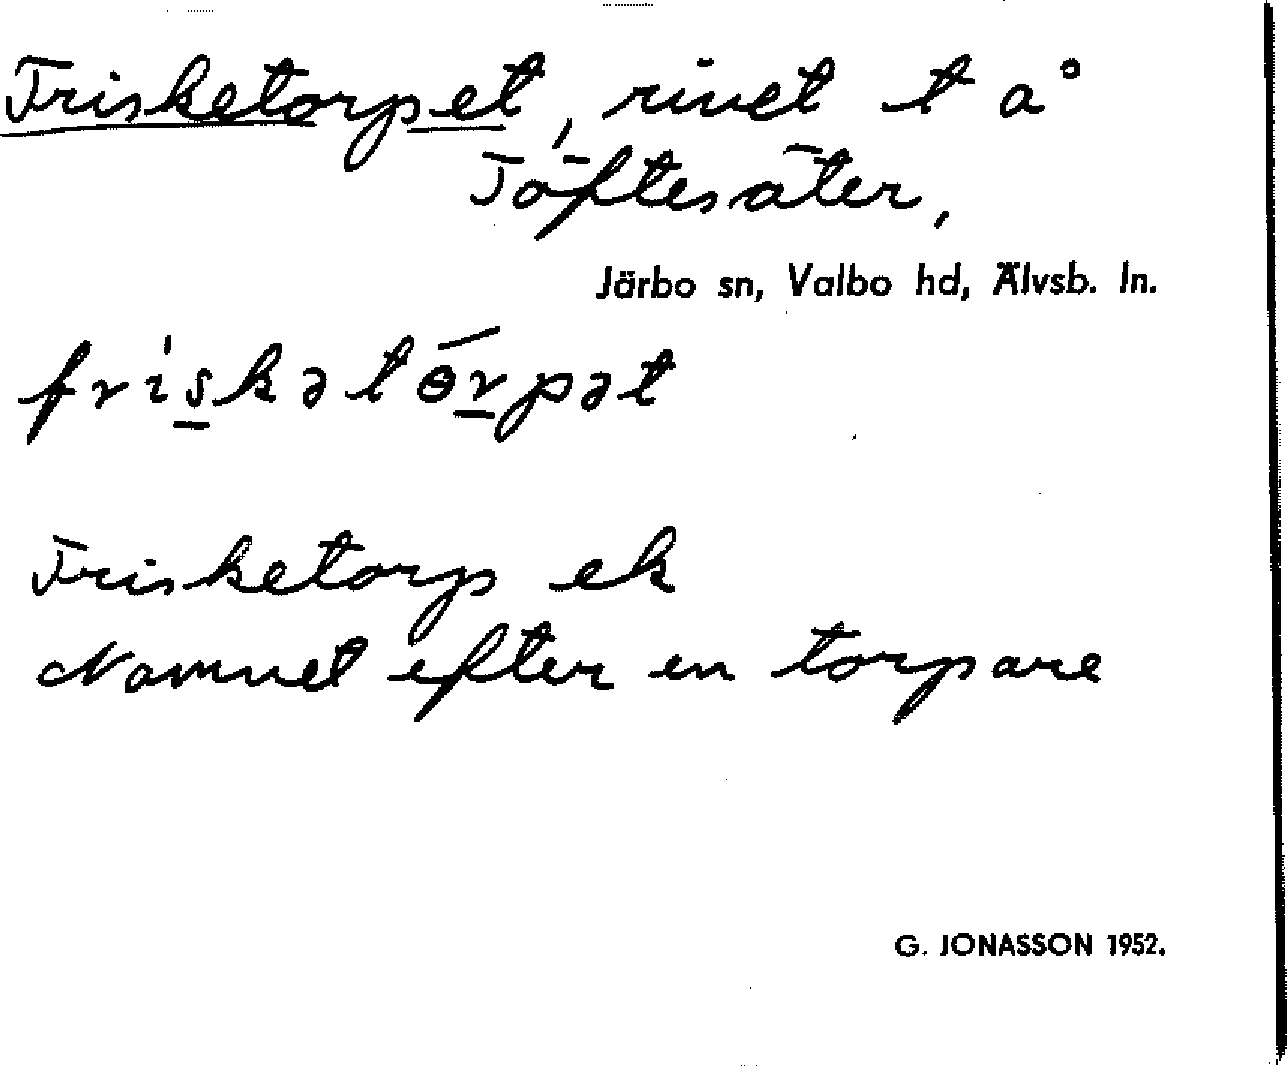 Frisketorpet, rivet t å
Töftesäter,
Järbo sn, Valbo hd, Älvsb. ln.
friskətɵrpət
Frisketorp ek
Namnet efter en torpare
G. JONASSON 1952.